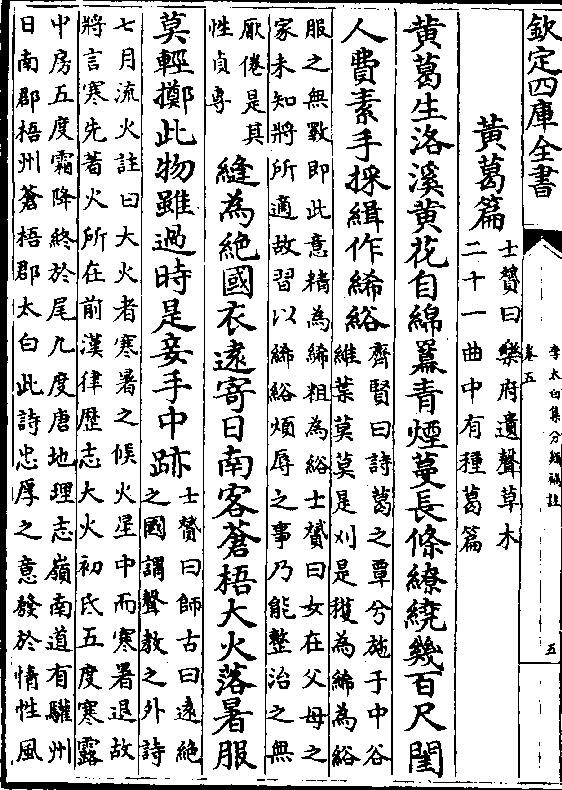 欽定四庫全書
李太白集分類補註
卷五
五
黃葛篇
士贇曰樂府遺聲草木
二十一曲中有種葛篇
黃葛生洛溪黃花自綿羃青煙蔓長條繚繞幾百尺閨
人費素手採緝作絺綌
齊賢曰詩葛之覃兮施于中谷
維葉莫莫是刈是穫為絺為綌
服之無斁即此意精為絺粗為綌士贇曰女在父母之
家未知將所適故習以絺綌煩辱之事乃能整治之無
厭倦是其
性貞専
縫為絶國衣逺寄日南客蒼梧大火落暑服
莫輕擲此物雖過時是妾手中跡
士贇曰師古曰逺絶
之國謂聲教之外詩
七月流火註曰大火者寒暑之候火星中而寒暑退故
將言寒先著火所在前漢律歴志大火初氐五度寒露
中房五度霜降終於尾九度唐地理志嶺南道有驩州
日南郡梧州蒼梧郡太白此詩忠厚之意發於情性風